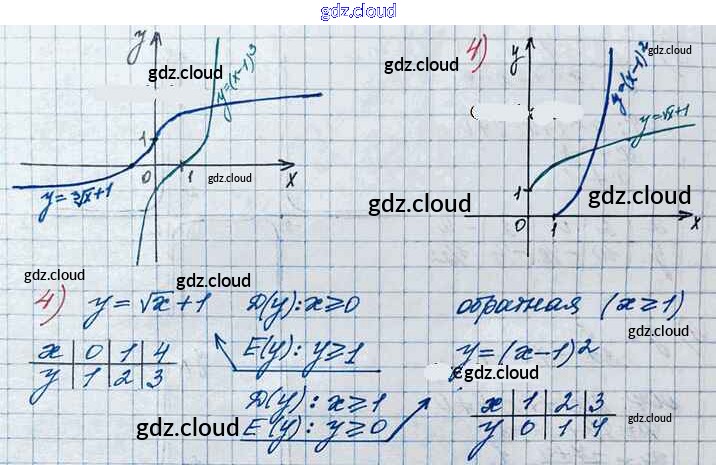 gdz.cloud
y
gdz.cloud
y=(x-1)³
1
0
1
x
gdz.cloud
y=∛x+1
4)
y
gdz.cloud
gdz.cloud
y=(x-1)²
y=√x+1
1
0
1
x
gdz.cloud
gdz.cloud
gdz.cloud
gdz.cloud
4) y=√x+1
D(y): x≥0
E(y): y≥1
x | 0 | 1 | 4
y | 1 | 2 | 3
D(y): x≥1
E(y): y≥0
gdz.cloud
обратная (x≥1)
gdz.cloud
y=(x-1)²
x | 1 | 2 | 3
y | 0 | 1 | 4
gdz.cloud
gdz.cloud